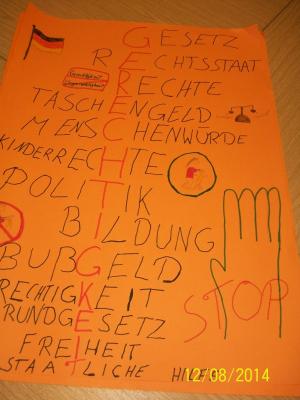 GESETZ
RECHTSSTAAT
RECHTE
TASCHENGELD
MENSCHENWÜRDE
KINDERRECHTE
POLITIK
BILDUNG
BUßGELD
RECHTIGKEIT
RUNDGESETZ
STOP
FREIHEIT
STAATLICHE HILFE
12/08/2014